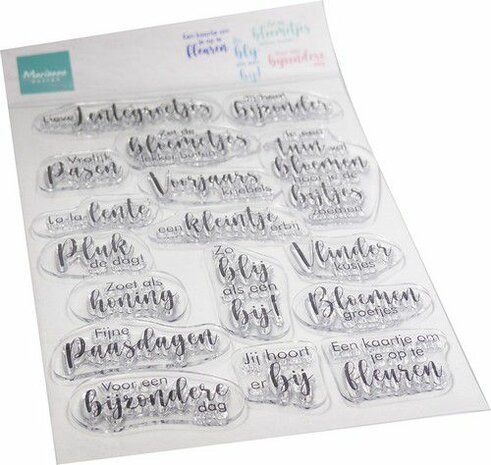 Een kaartje om
je op te
fleuren
Zo
blij
als een
bij!
Zet de
bloemetjes
lekker buiten
Voor een
bijzondere
dag
Marianne
DESIGN
Lieve Lentegroetjes
Jij bent
bijzonder
Zet de
bloemetjes
lekker buiten
Je een
tuin vol
bloemen
waar je de
bijtjes
zoemen
Vrolijk
Pasen
Voorjaars
kriebels
La-la lente
een kleintje erbij
Pluk
de dag!
Zo
blij
als een
bij!
Vlinder
kusjes
Zoet als
honing
Bloemen
groetjes
Fijne
Paasdagen
Jij hoort
er bij
Een kaartje om
je op te
fleuren
Voor een
bijzondere
dag